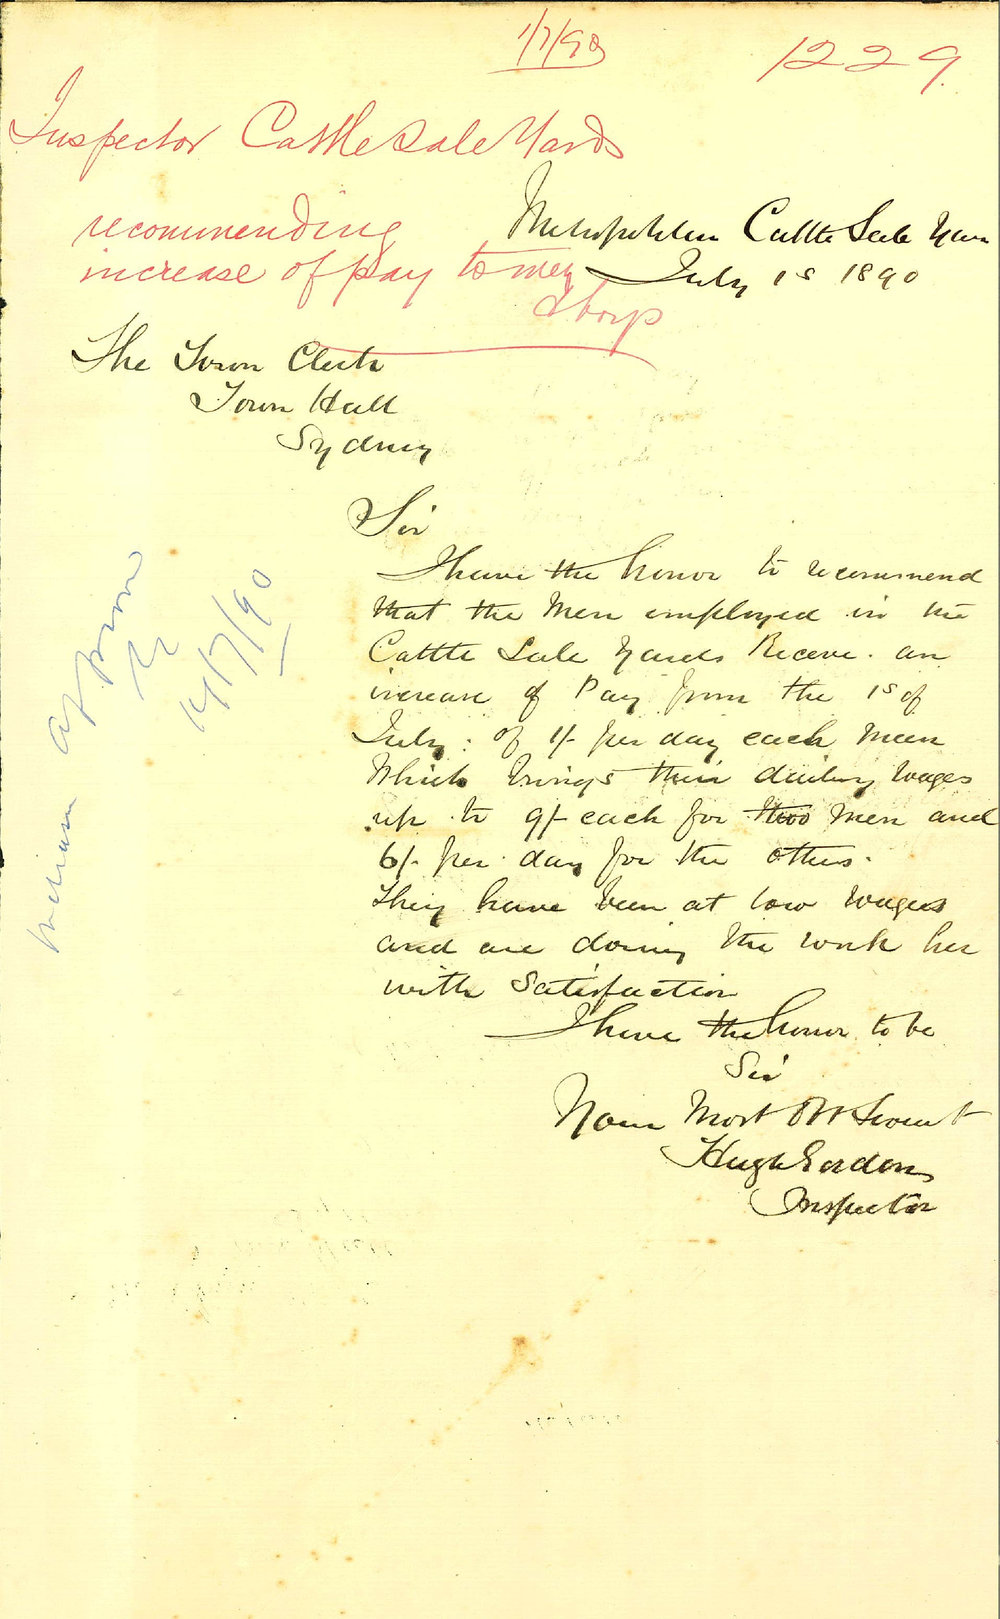 1/7/90
1229
Inspector Cattle Sale Yards
recommending
increase of pay to men
Metropolitan Cattle Sale Yards
July 1s 1890
The Town Clerk
Town Hall
Sydney
Sir
I have the honor to recommend
that the Men employed in the
Cattle Sale Yards Receive. an
increase of Pay from the 1s of
July: of 1/- per day each man
Which brings their dailey wages
up to 9/- each for two Men and
6/- per day for the others.
They have been at low wages
and are doing the work her
with Satisfaction
I have the honor to be
Sir
Your Most Obt Servant
Hugh Gordon
Inspector
approve
4/7/90